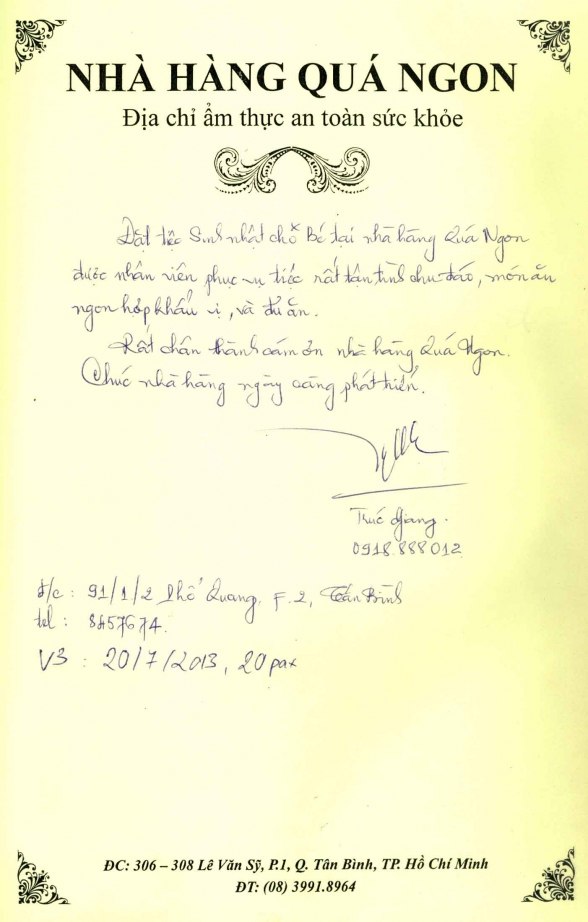 NHÀ HÀNG QUÁ NGON
Địa chỉ ẩm thực an toàn sức khỏe
Đặt tiệc Sinh nhật cho Bé tại nhà hàng Quá Ngon
được nhân viên phục vụ tiếc rất tận tình chu đáo, món ăn
ngon hợp khẩu vị, và đủ ăn.
Rất chân thành cám ơn nhà hàng Quá Ngon.
Chúc nhà hàng ngày càng phát triển.
Trúc Giang.
0918.888012
đ/c : 91/1/2 Phổ Quang, F.2, Tân Bình
tel : 8457674.
V3 : 20/7/2013, 20pax
ĐC: 306 – 308 Lê Văn Sỹ, P.1, Q. Tân Bình, TP. Hồ Chí Minh
ĐT: (08) 3991.8964